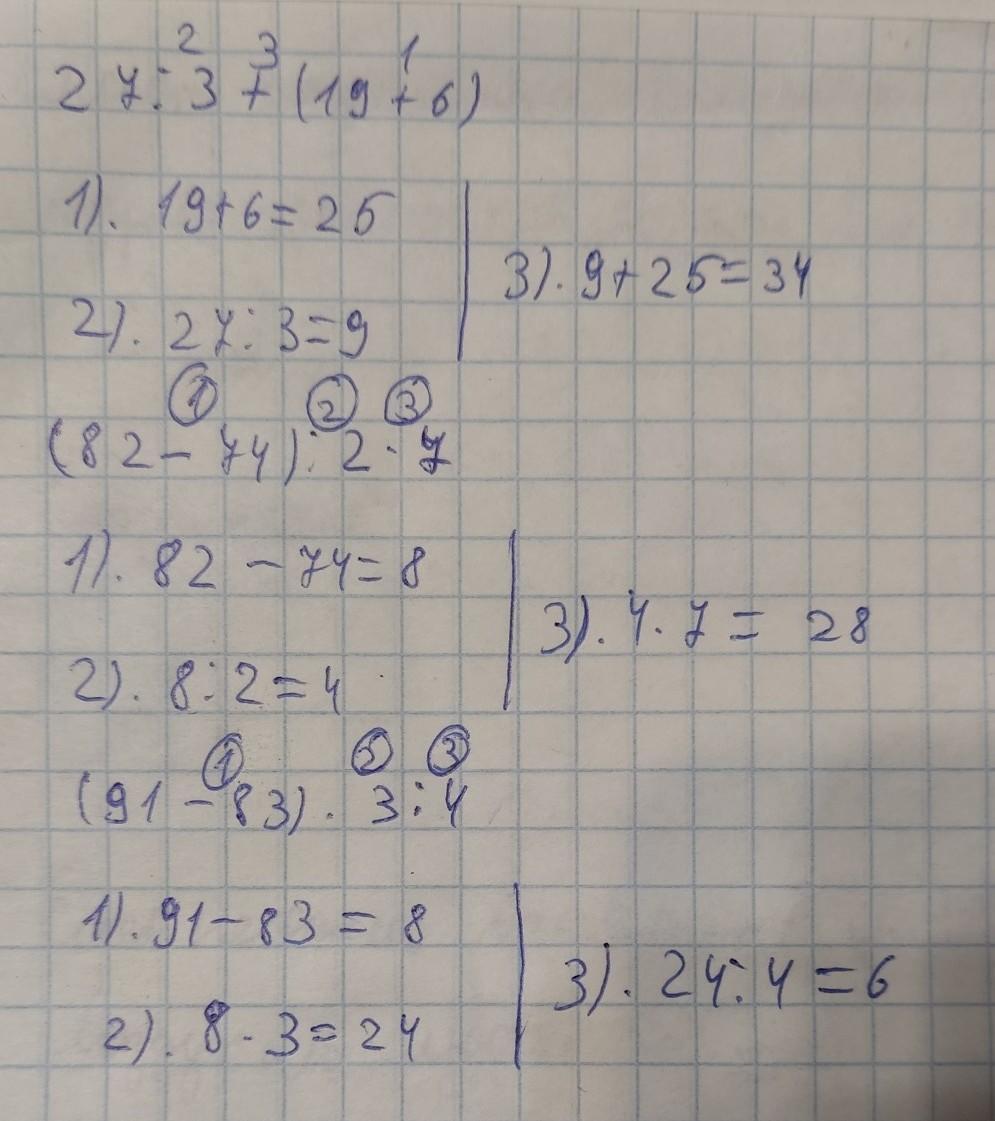 2 3 1
27:3+(19+6)
1). 19+6=25
2). 27:3=9
3). 9+25=34
1 2 3
(82-74):2·7
1). 82-74=8
2). 8:2=4
3). 4·7=28
1 2 3
(91-83)·3:4
1). 91-83=8
2). 8·3=24
3). 24:4=6